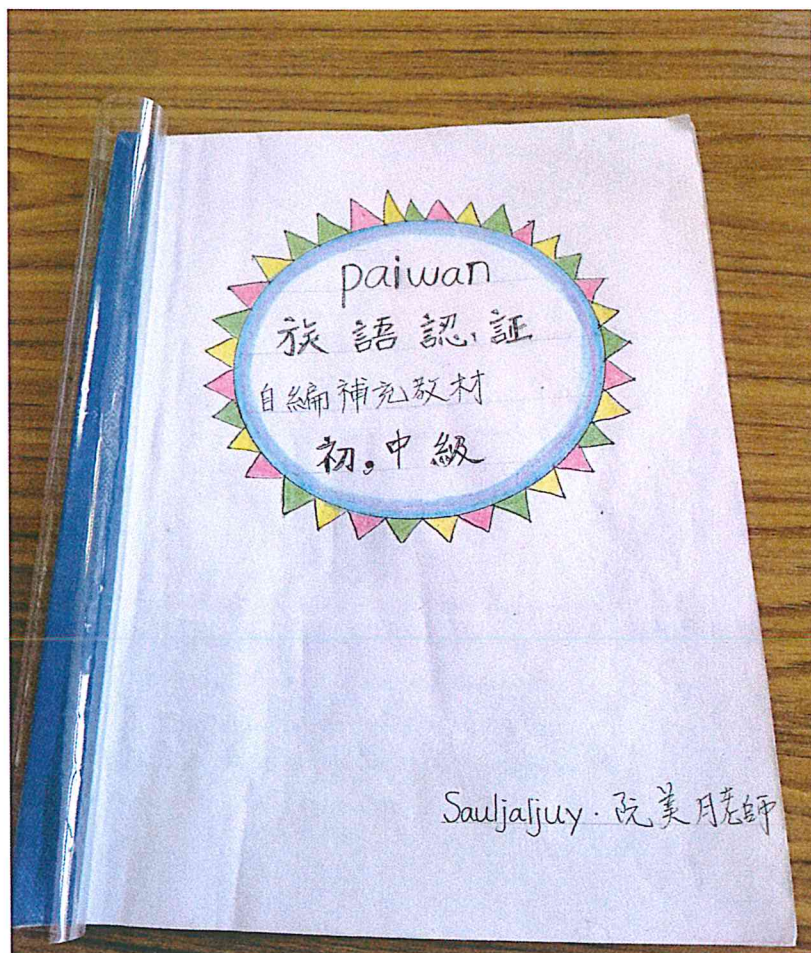 paiwan
族語認証
自編補充教材
初。中級
Sauljaljuy·阮美月老師